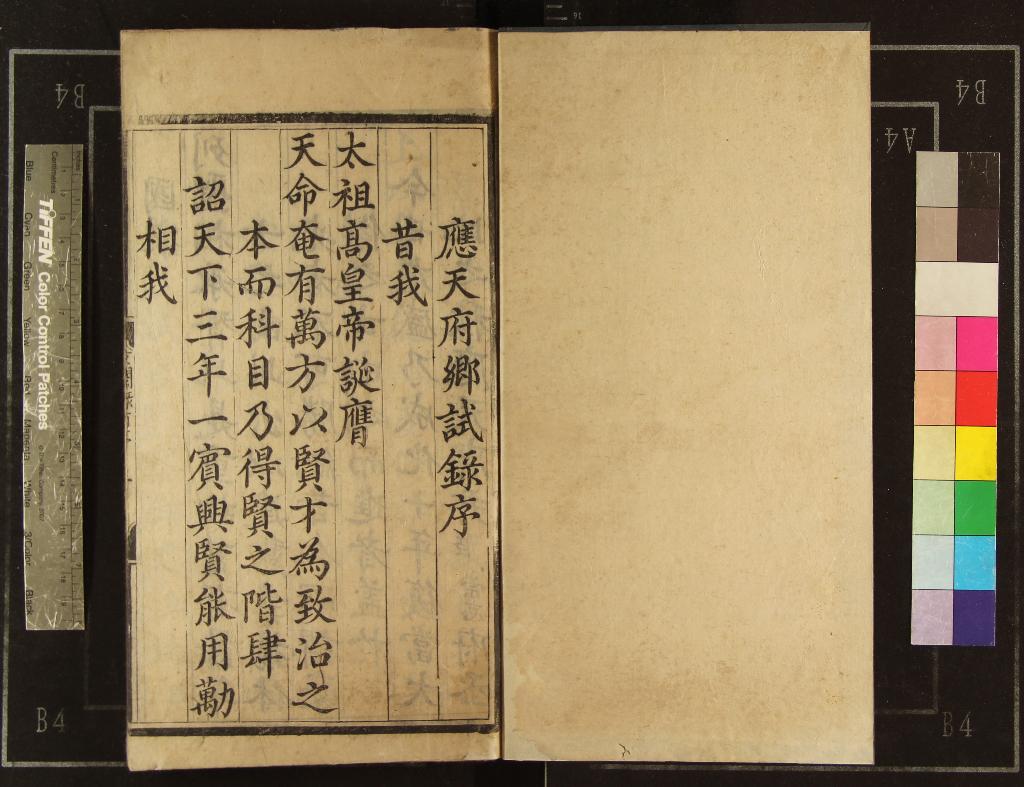 應天府鄉試錄序
昔我
太祖高皇帝誕膺
天命奄有萬方以賢才為致治之
本而科目乃得賢之階肆
詔天下三年一賓興賢能用勱
相我
B4
B4
A4
B4
B4
TIFFEN Color Control Patches
Centimetres
Blue
Cyan
Green
Yellow
Red
Magenta
White
3/Color
Black